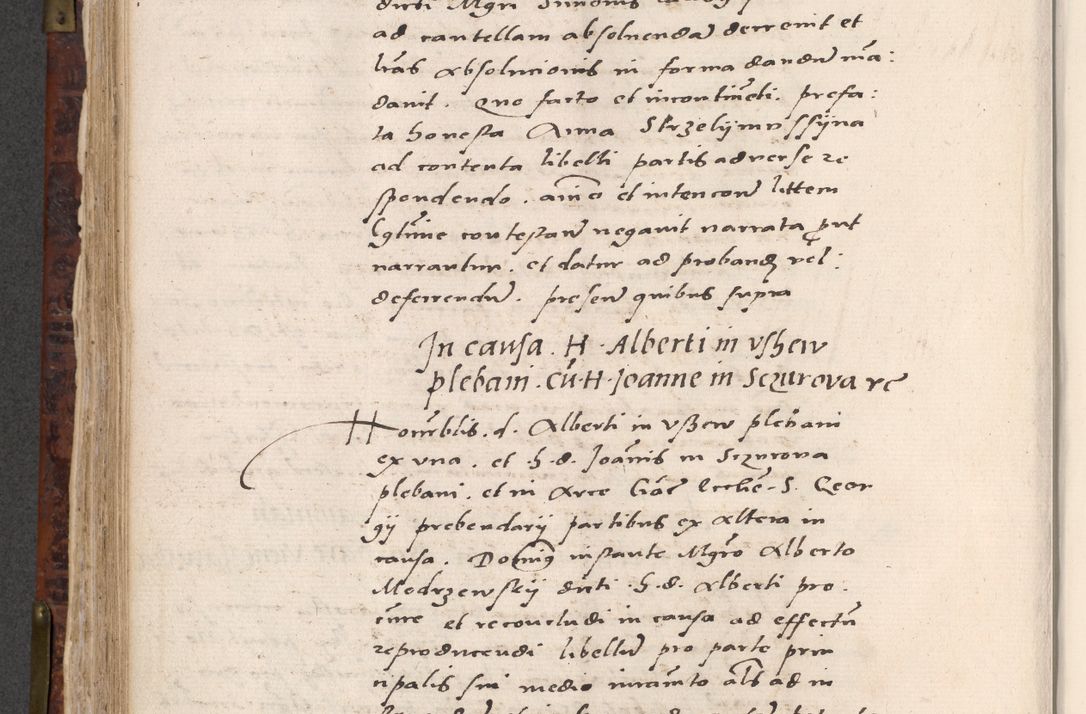 dicti Mgri Simonis
ad cautellam absoluendã decreuit et
lr̃as absolucionis in forma dandũ mã:
dauit. Quo facto et incontinẽti. prefa:
ta honesta Anna Strzelijmwssijna
ad contenta libelli partis aduerse re
spondendo. aĩo et intencoñ littem
lgt̃ime contestañ negauit narrata ꝓut
narrantur. et datur ad proband vel:
deferrendũ. preseñ quibus supra
In causa. H. Alberti in vshew
plebani. Cũ. H. Joanne in Sczurova rc
Honr̃blis. d. Alberti in vßew pleb̃ani
ex vna. et. h. d. Joãnis in Sczurova
plebani. et in Arce Ecclie. S. Geor
gij prebendarij partibus ex altera in
causa. Dominus instante Mgr̃o Alberto
Modrzewskij dicti. h. d. Alberti pro.
cure et recon­cludi in causa ad effectũ
reproducendi libellũ pro parte prin
cipalis sui medio iuram̃to als ad in